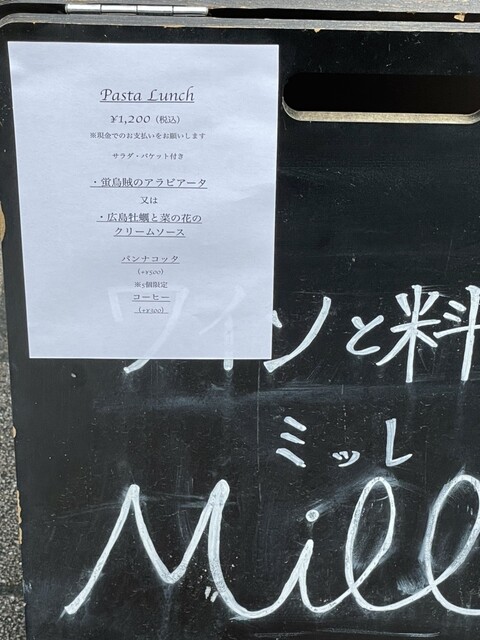 Pasta Lunch
¥1,200（税込）
※現金でのお支払いをお願いします
サラダ・バケット付き
・蛍烏賊のアラビアータ
又は
・広島牡蠣と菜の花の
クリームソース
パンナコッタ
(+¥500)
※5個限定
コーヒー
(+¥300)
ワインと料
ミッレ
Mill